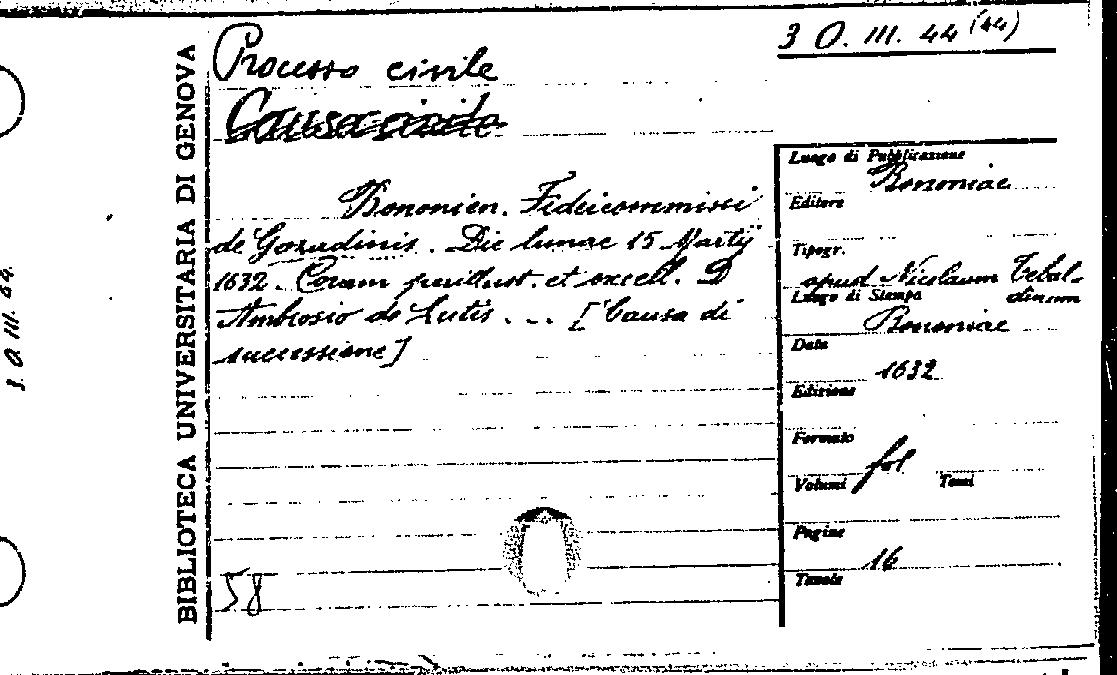 3 O. III. 44 (44)
Processo civile
Causa civile
Bononien. Fideicommissi
de Gozadinis. Die lunae 15 Martij
1632. Coram perillust. et excell. D
Ambrosio de Lutis ... [Causa di
successione]
58
BIBLIOTECA UNIVERSITARIA DI GENOVA
3. O III. 44.
Luogo di Pubblicazione
Bononiae
Editore
Tipogr.
apud Nicolaum Tebal-
dinum
Luogo di Stampa
Bononiae
Data
1632
Edizione
Formato
fol
Volumi Tomi
Pagine
16
Tavole